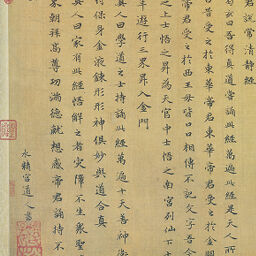 君說常清靜經
吾得真道曾誦此經萬遍此經是天人所
昔受之於東華帝君東華帝君受之於金闕
帝君受之於西王母皆口口相傳不記文字吾今
之上士悟之昇為天官中士悟之南宮列仙下士
年遊行三界昇入金門
真人曰學道之士持誦此經萬遍十天善神衛
符保身金液鍊形形神俱妙與道合真
真人曰家有此經悟解之者災障不生衆聖
朝拜高尊功滿德就想感帝君誦持不
水精宮道人書